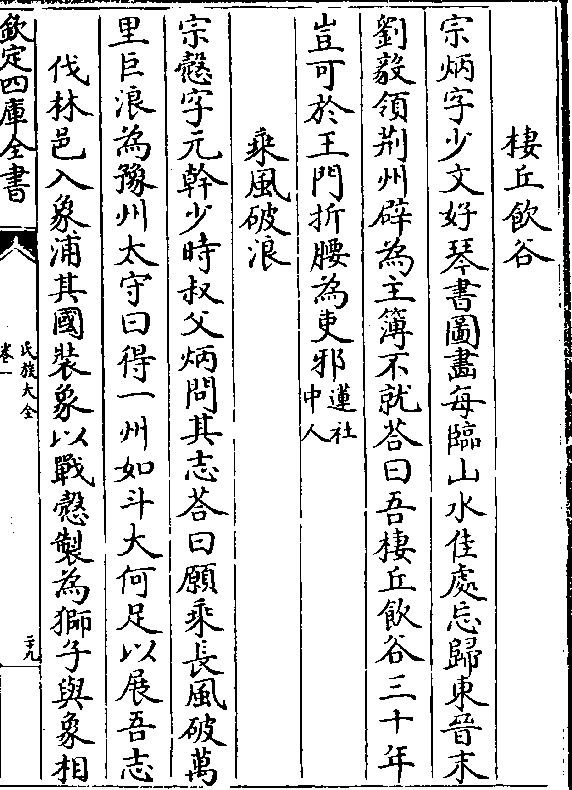 棲丘飲谷
宗炳字少文好琴書圖畫每臨山水佳處忘歸東晉末
劉毅領荆州辟為主簿不就荅曰吾棲丘飲谷三十年
豈可於王門折腰為吏邪蓮社中人
乘風破浪
宗慤字元幹少時叔父炳問其志荅曰願乘長風破萬
里巨浪為豫州太守曰得一州如斗大何足以展吾志
伐林邑入象浦其國裝象以戰慤製為獅子與象相
欽定四庫全書
氏族大全
卷一
二九